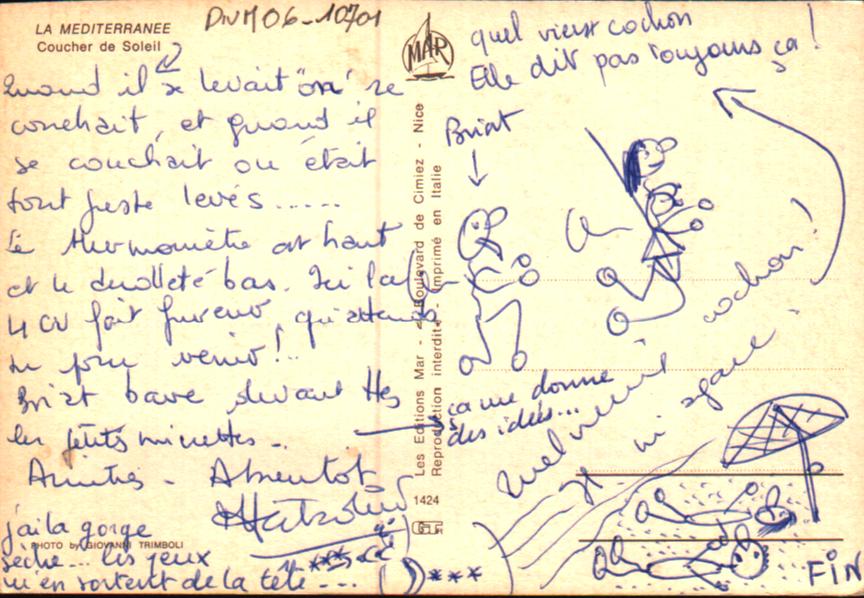 DIVM06-10701
LA MEDITERRANEE
Coucher de Soleil
Quand il se levait "on" se
couchait, et quand il
se couchait on était
tout juste levés......
Le thermomètre est haut
et le décolleté bas. Ici la
4 CV fait fureur, qu'attends
tu pour venir!..
Briat bave devant ttes
les petits minettes -
Amitiés - Abientot
j'ai la gorge
sèche... les yeux
m'en sortent de la tête...
PHOTO by GIOVANNI TRIMBOLI
MAR
Les Editions Mar - Boulevard de Cimiez - Nice
Reproduction interdite - Imprimé en Italie
1424
quel vieux cochon
Elle dit pas toujours ça!
Briat
ça me donne
des idées...
Quel vieux cochon!
***
FIN